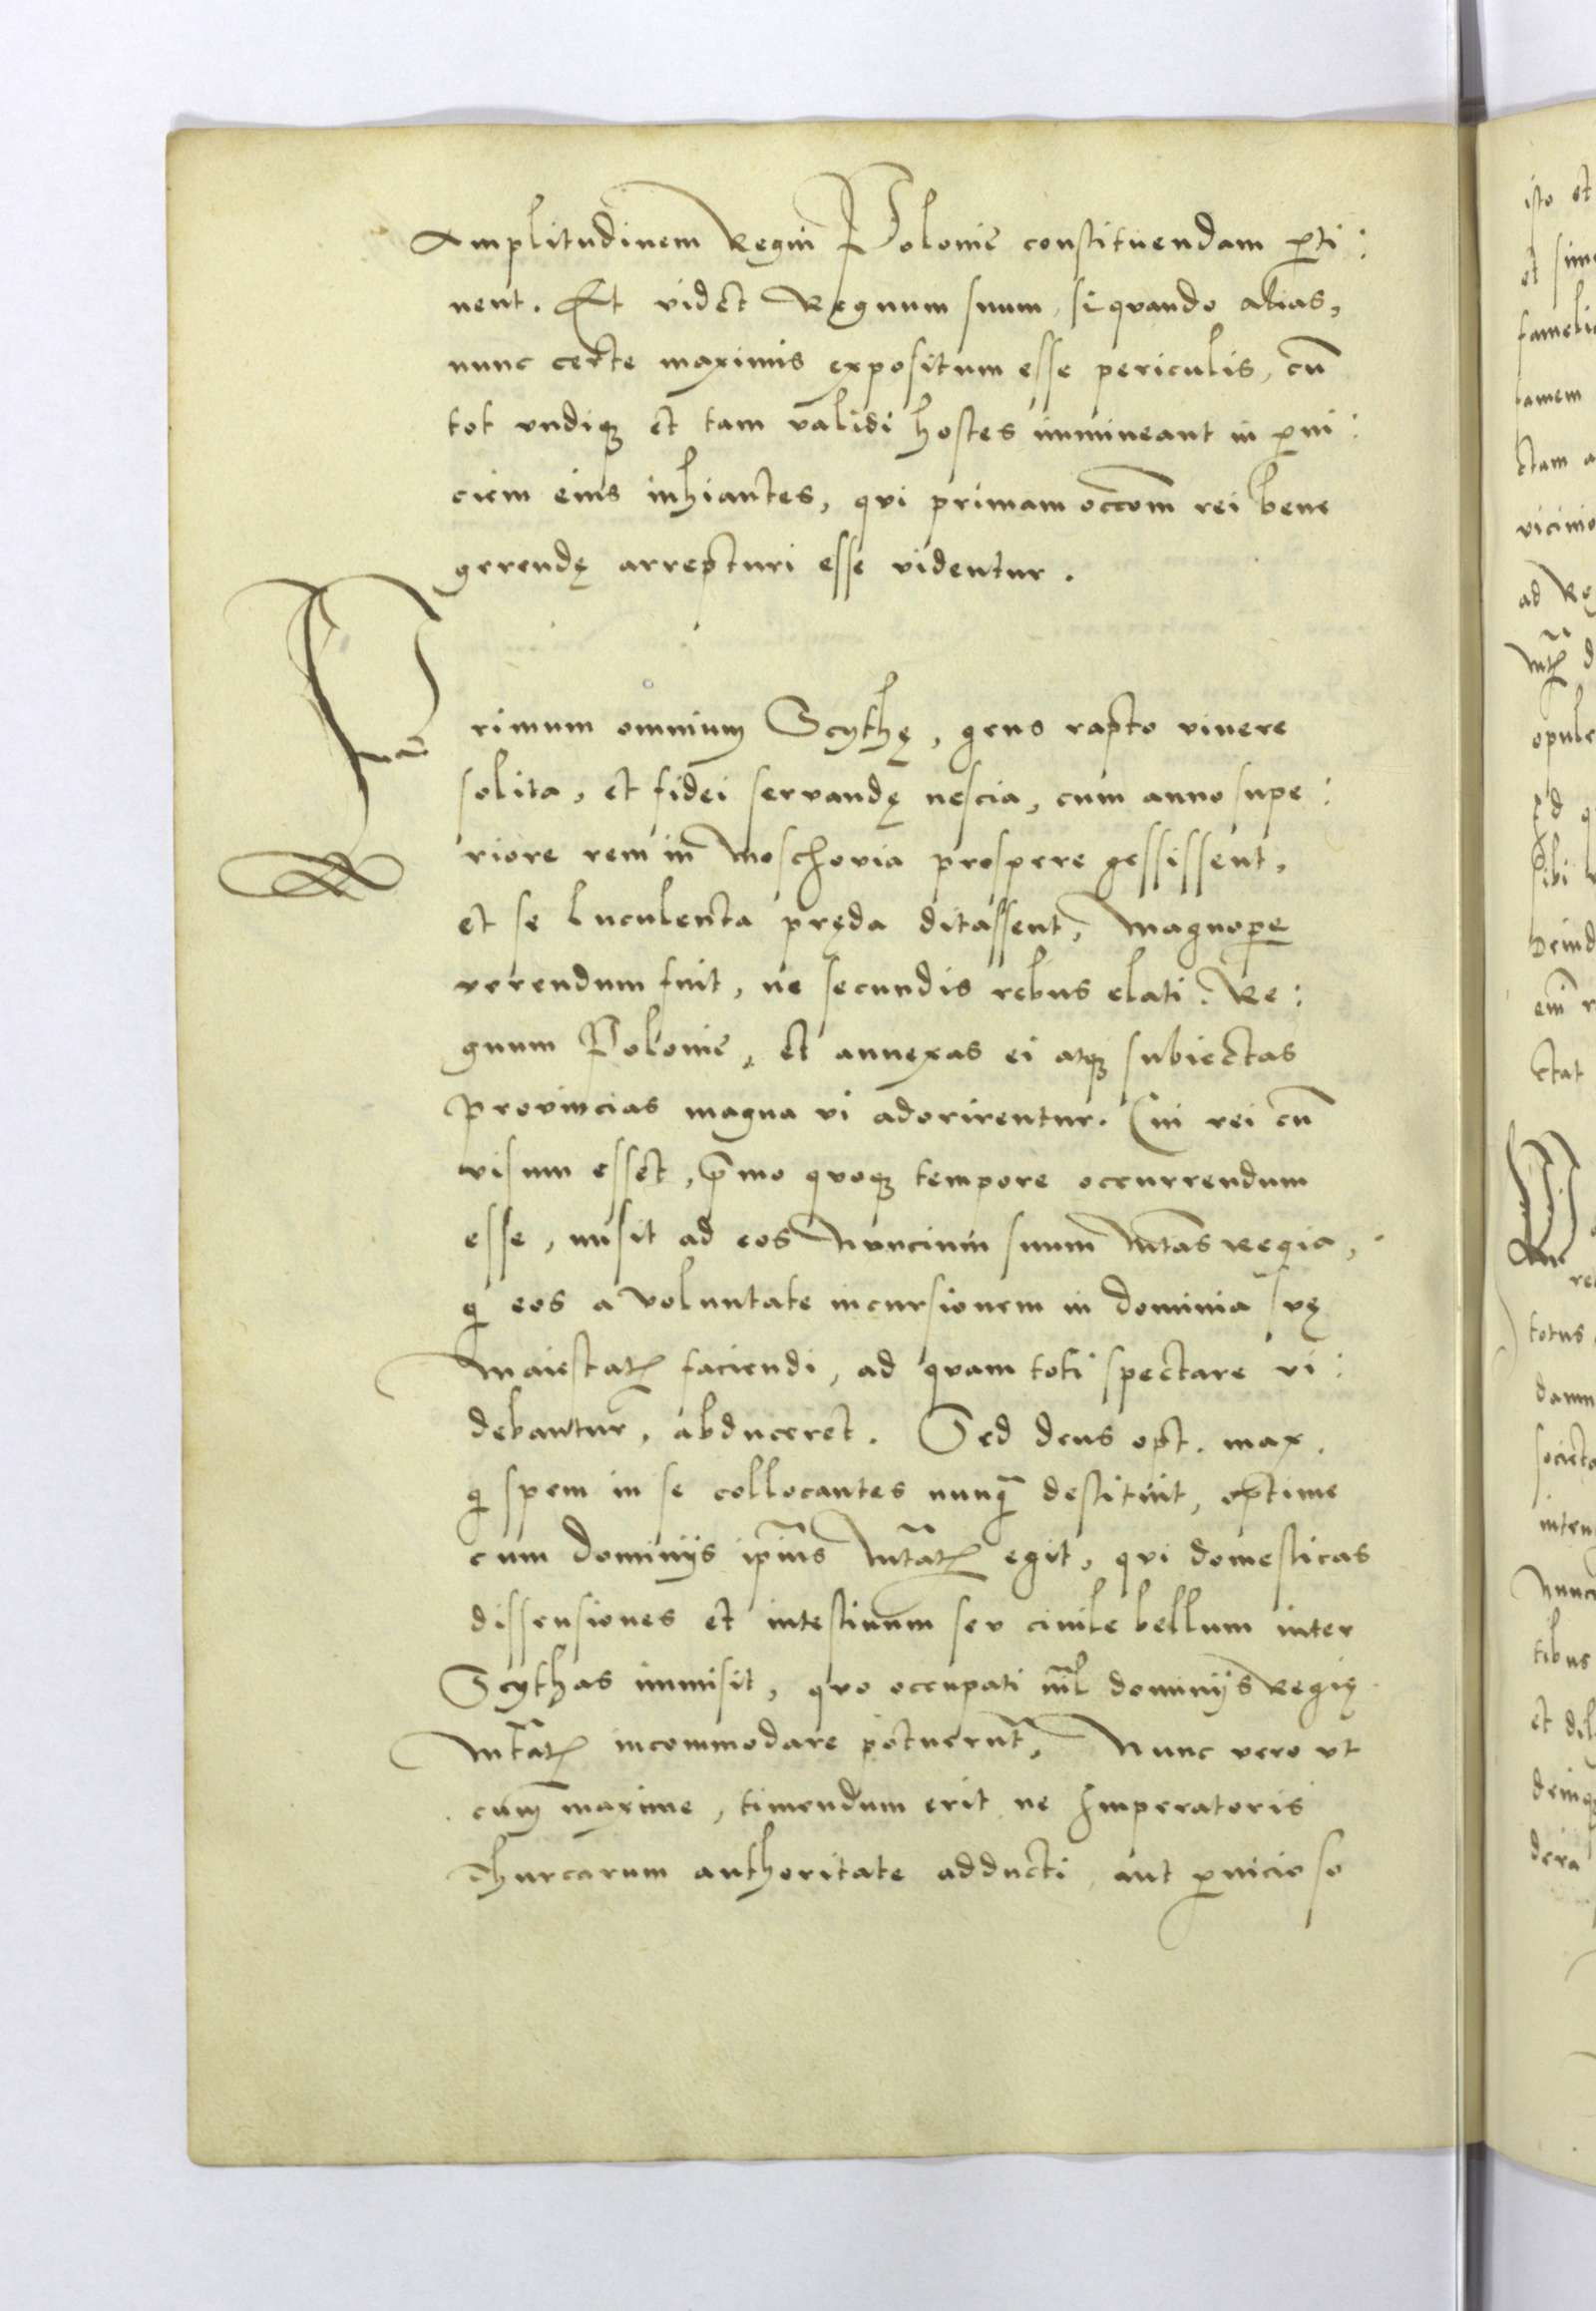 Amplitudinem Regni Polonie constituendam ꝑti:
nent. Et videt Regnum suum, si quando alias,
nunc certe maximis expositum esse periculis, cū
tot vndiqꝫ et tam validi hostes immineant in ꝑni:
ciem eius inhiantes, qui primam occom̄ rei bene
gerendę arrepturi esse videntur.
Primum omnium Scythę, gens rapto viuere
solita, et fidei seruandę nescia, cum anno supe:
riore rem in Moschouia prospere gessissent,
et se luculenta pręda ditassent, Magnoꝑe
verendum fuit, ne secundis rebus elati. Re:
gnum Polonie, et annexas ei atqꝫ subiectas
prouincias magna vi adorirentur. Cui rei cū
visum esset, pͥmo quoqꝫ tempore occurrendum
esse, misit ad eos Nuncium suum Mtas Regia,
qͥ eos a voluntate incursionem in dominia suę
Maiestatꝭ faciendi, ad quam toti spectare vi:
debantur, abduceret. Sed deus opt. max.
qͥ spem in se collocantes nunqͣ destituit, optime
cum dominijs ip̄ius Mtatꝭ egit, qui domesticas
dissensiones et intestinum seu ciuile bellum inter
Scythas immisit, quo occupati nil̄ dominijs Regię
Mtatꝭ incommodare potuerūt, Nunc vero vt
cum maxime, timendum erit ne Imperatoris
Thurcarum authoritate adducti, aut ꝑnicioso